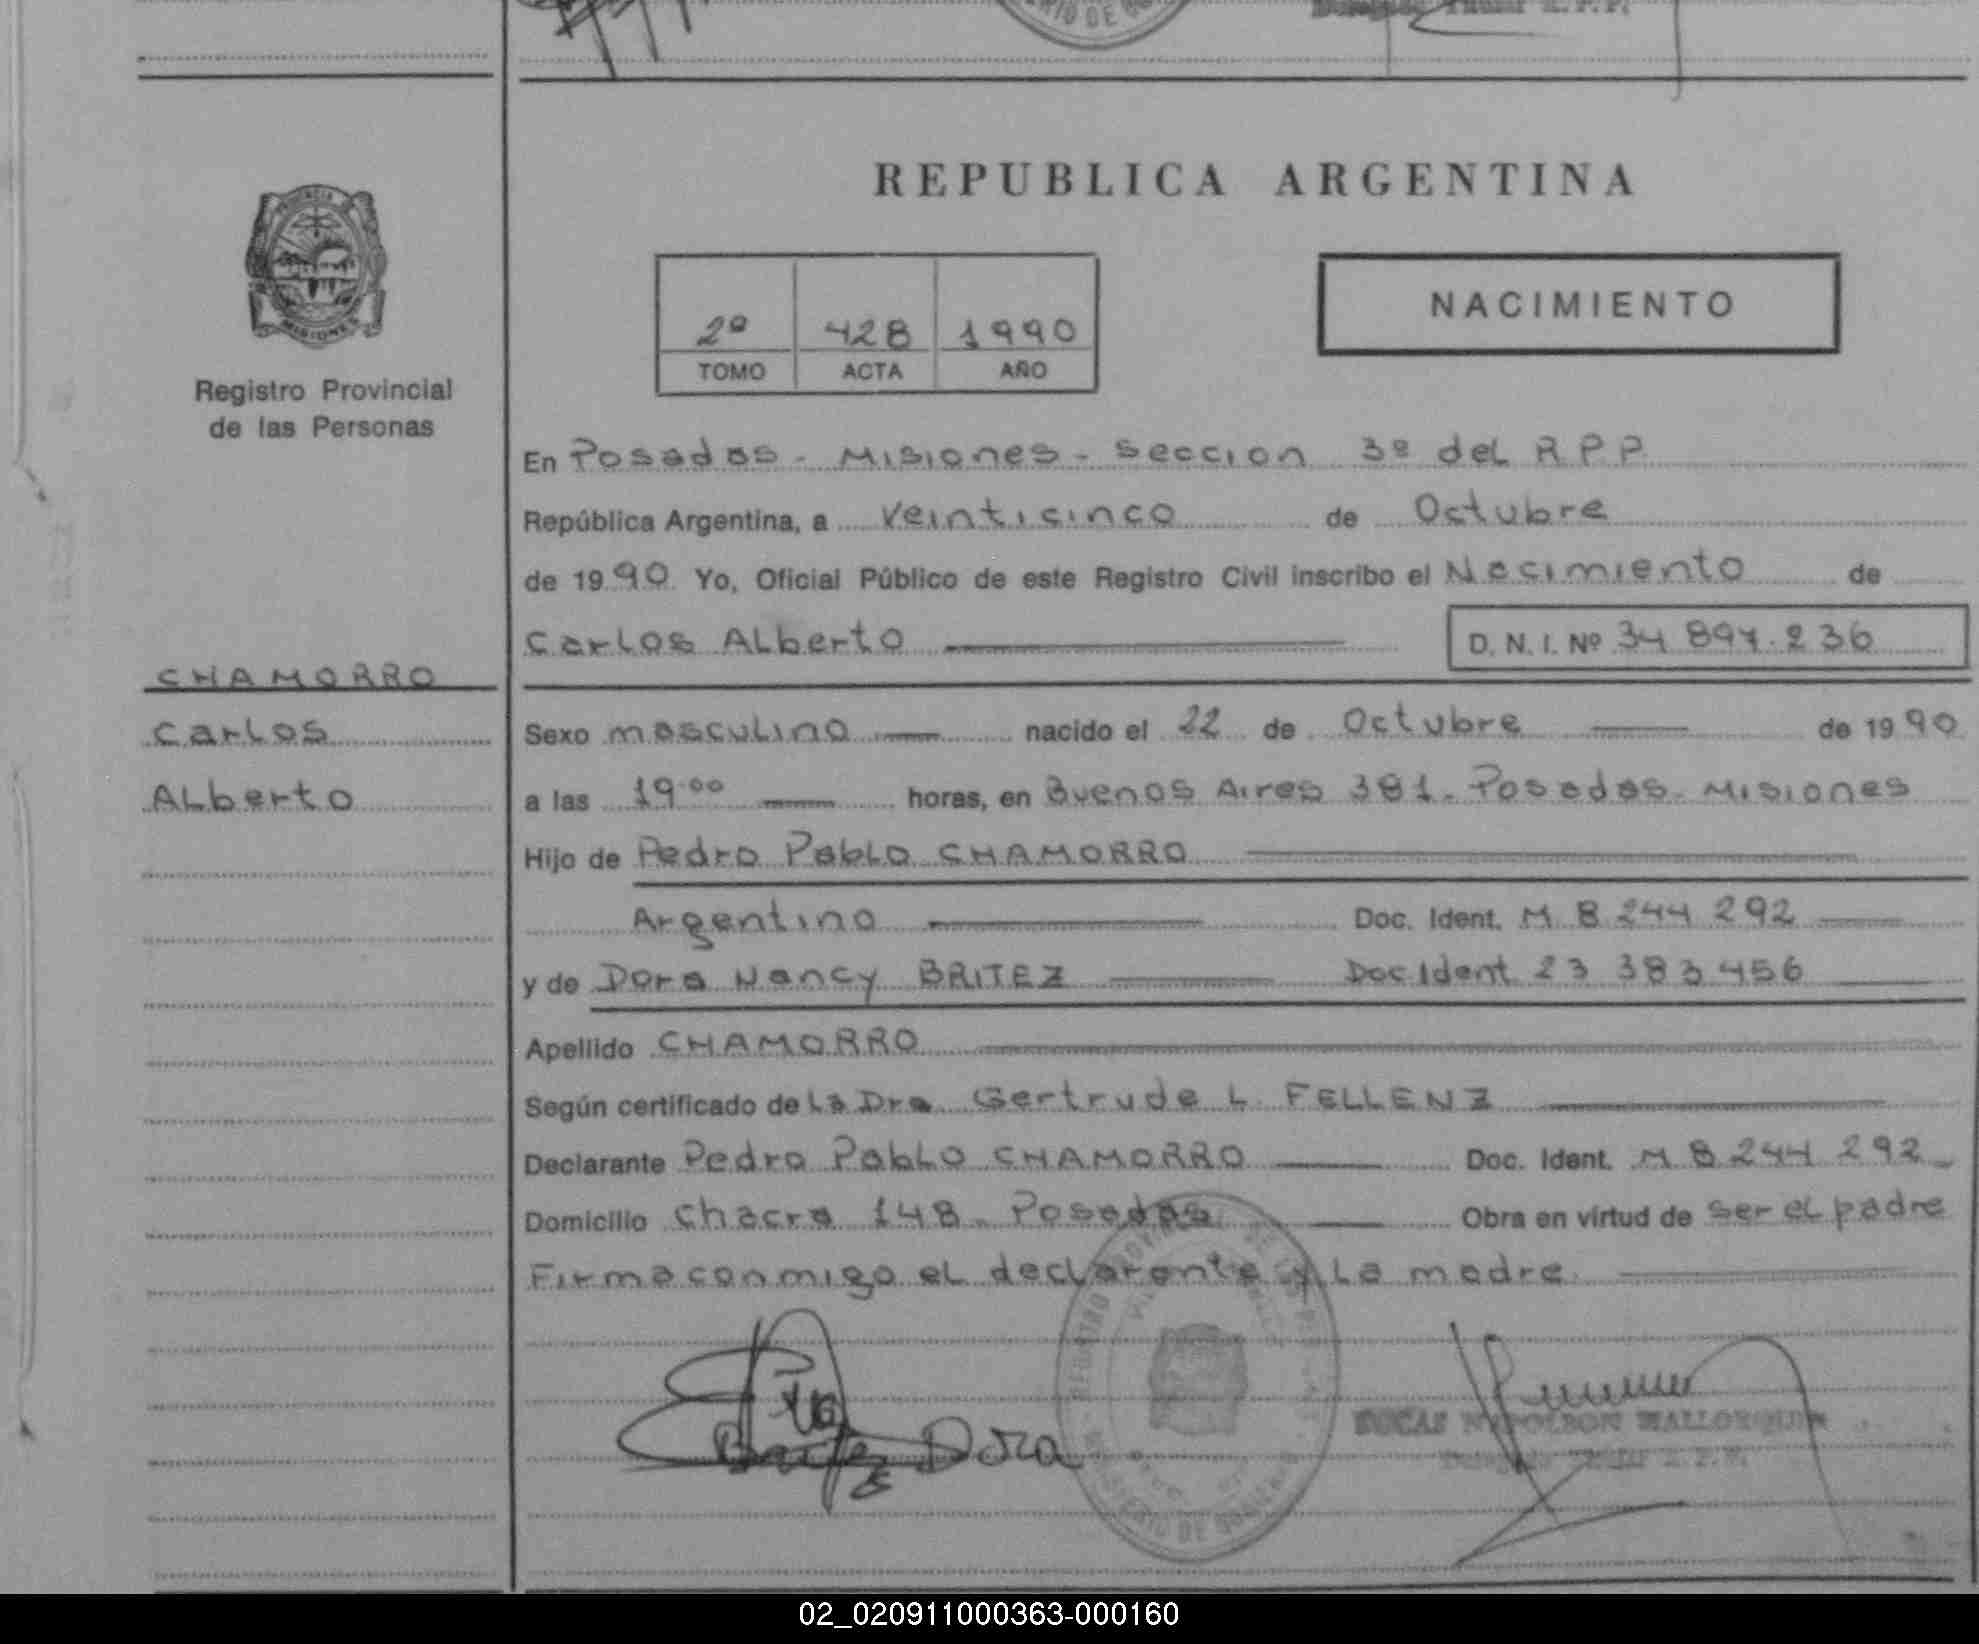 REPUBLICA ARGENTINA
NACIMIENTO
2º 428 1990
TOMO ACTA AÑO
MISIONES
Registro Provincial
de las Personas
En Posadas - Misiones - Seccion 3º del R P P
República Argentina, a Veinticinco de Octubre
de 1990 Yo, Oficial Público de este Registro Civil inscribo el Nacimiento de
Carlos Alberto D. N. I. Nº 34 897.236
CHAMORRO
Carlos
Alberto
Sexo masculino nacido el 22 de Octubre de 1990
a las 19.00 horas, en Buenos Aires 381. Posadas. Misiones
Hijo de Pedro Pablo CHAMORRO
Argentino Doc. Ident. M 8 244 292
y de Dora Nancy BRITEZ Doc Ident 23 383 456
Apellido CHAMORRO
Según certificado de La Dra Gertrude L. FELLENZ
Declarante Pedro Pablo CHAMORRO Doc. Ident. M 8 244 292
Domicilio Chacra 148. Posadas Obra en virtud de ser el padre
Firma conmigo el declarante y La madre.
Britez Dora
LUCAS NAPOLEON MALLORQUIN
02_020911000363-000160